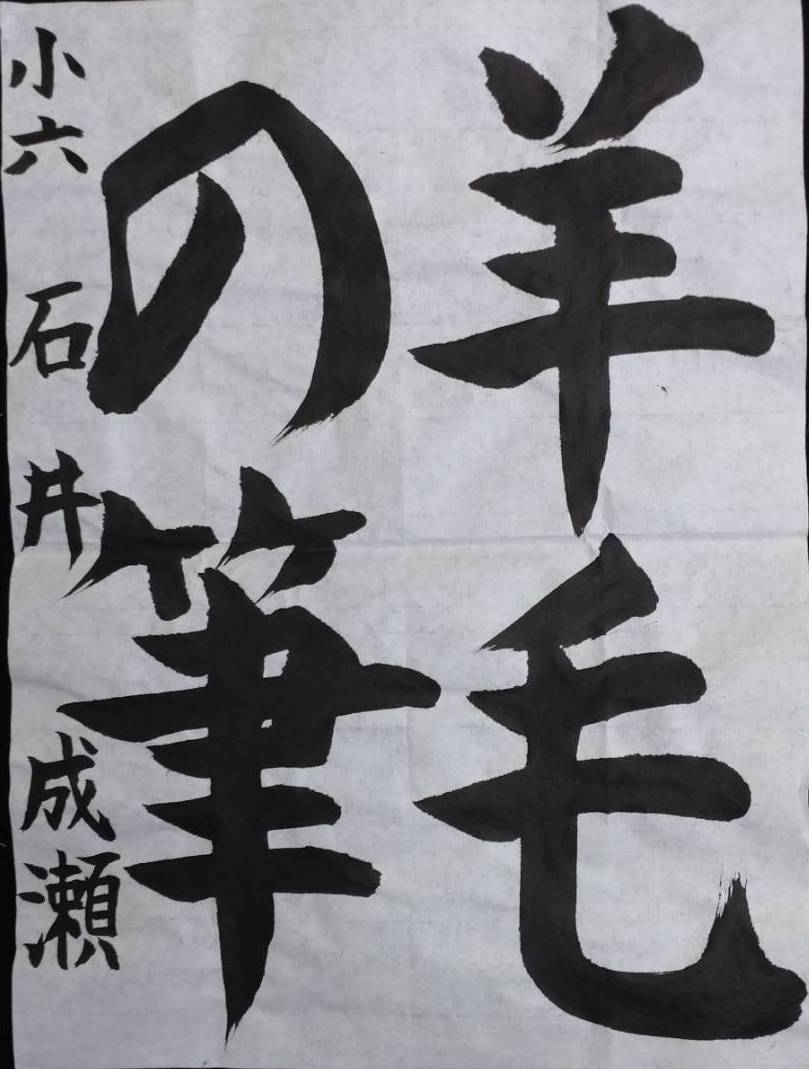 羊毛
の筆
小六 石井 成瀬